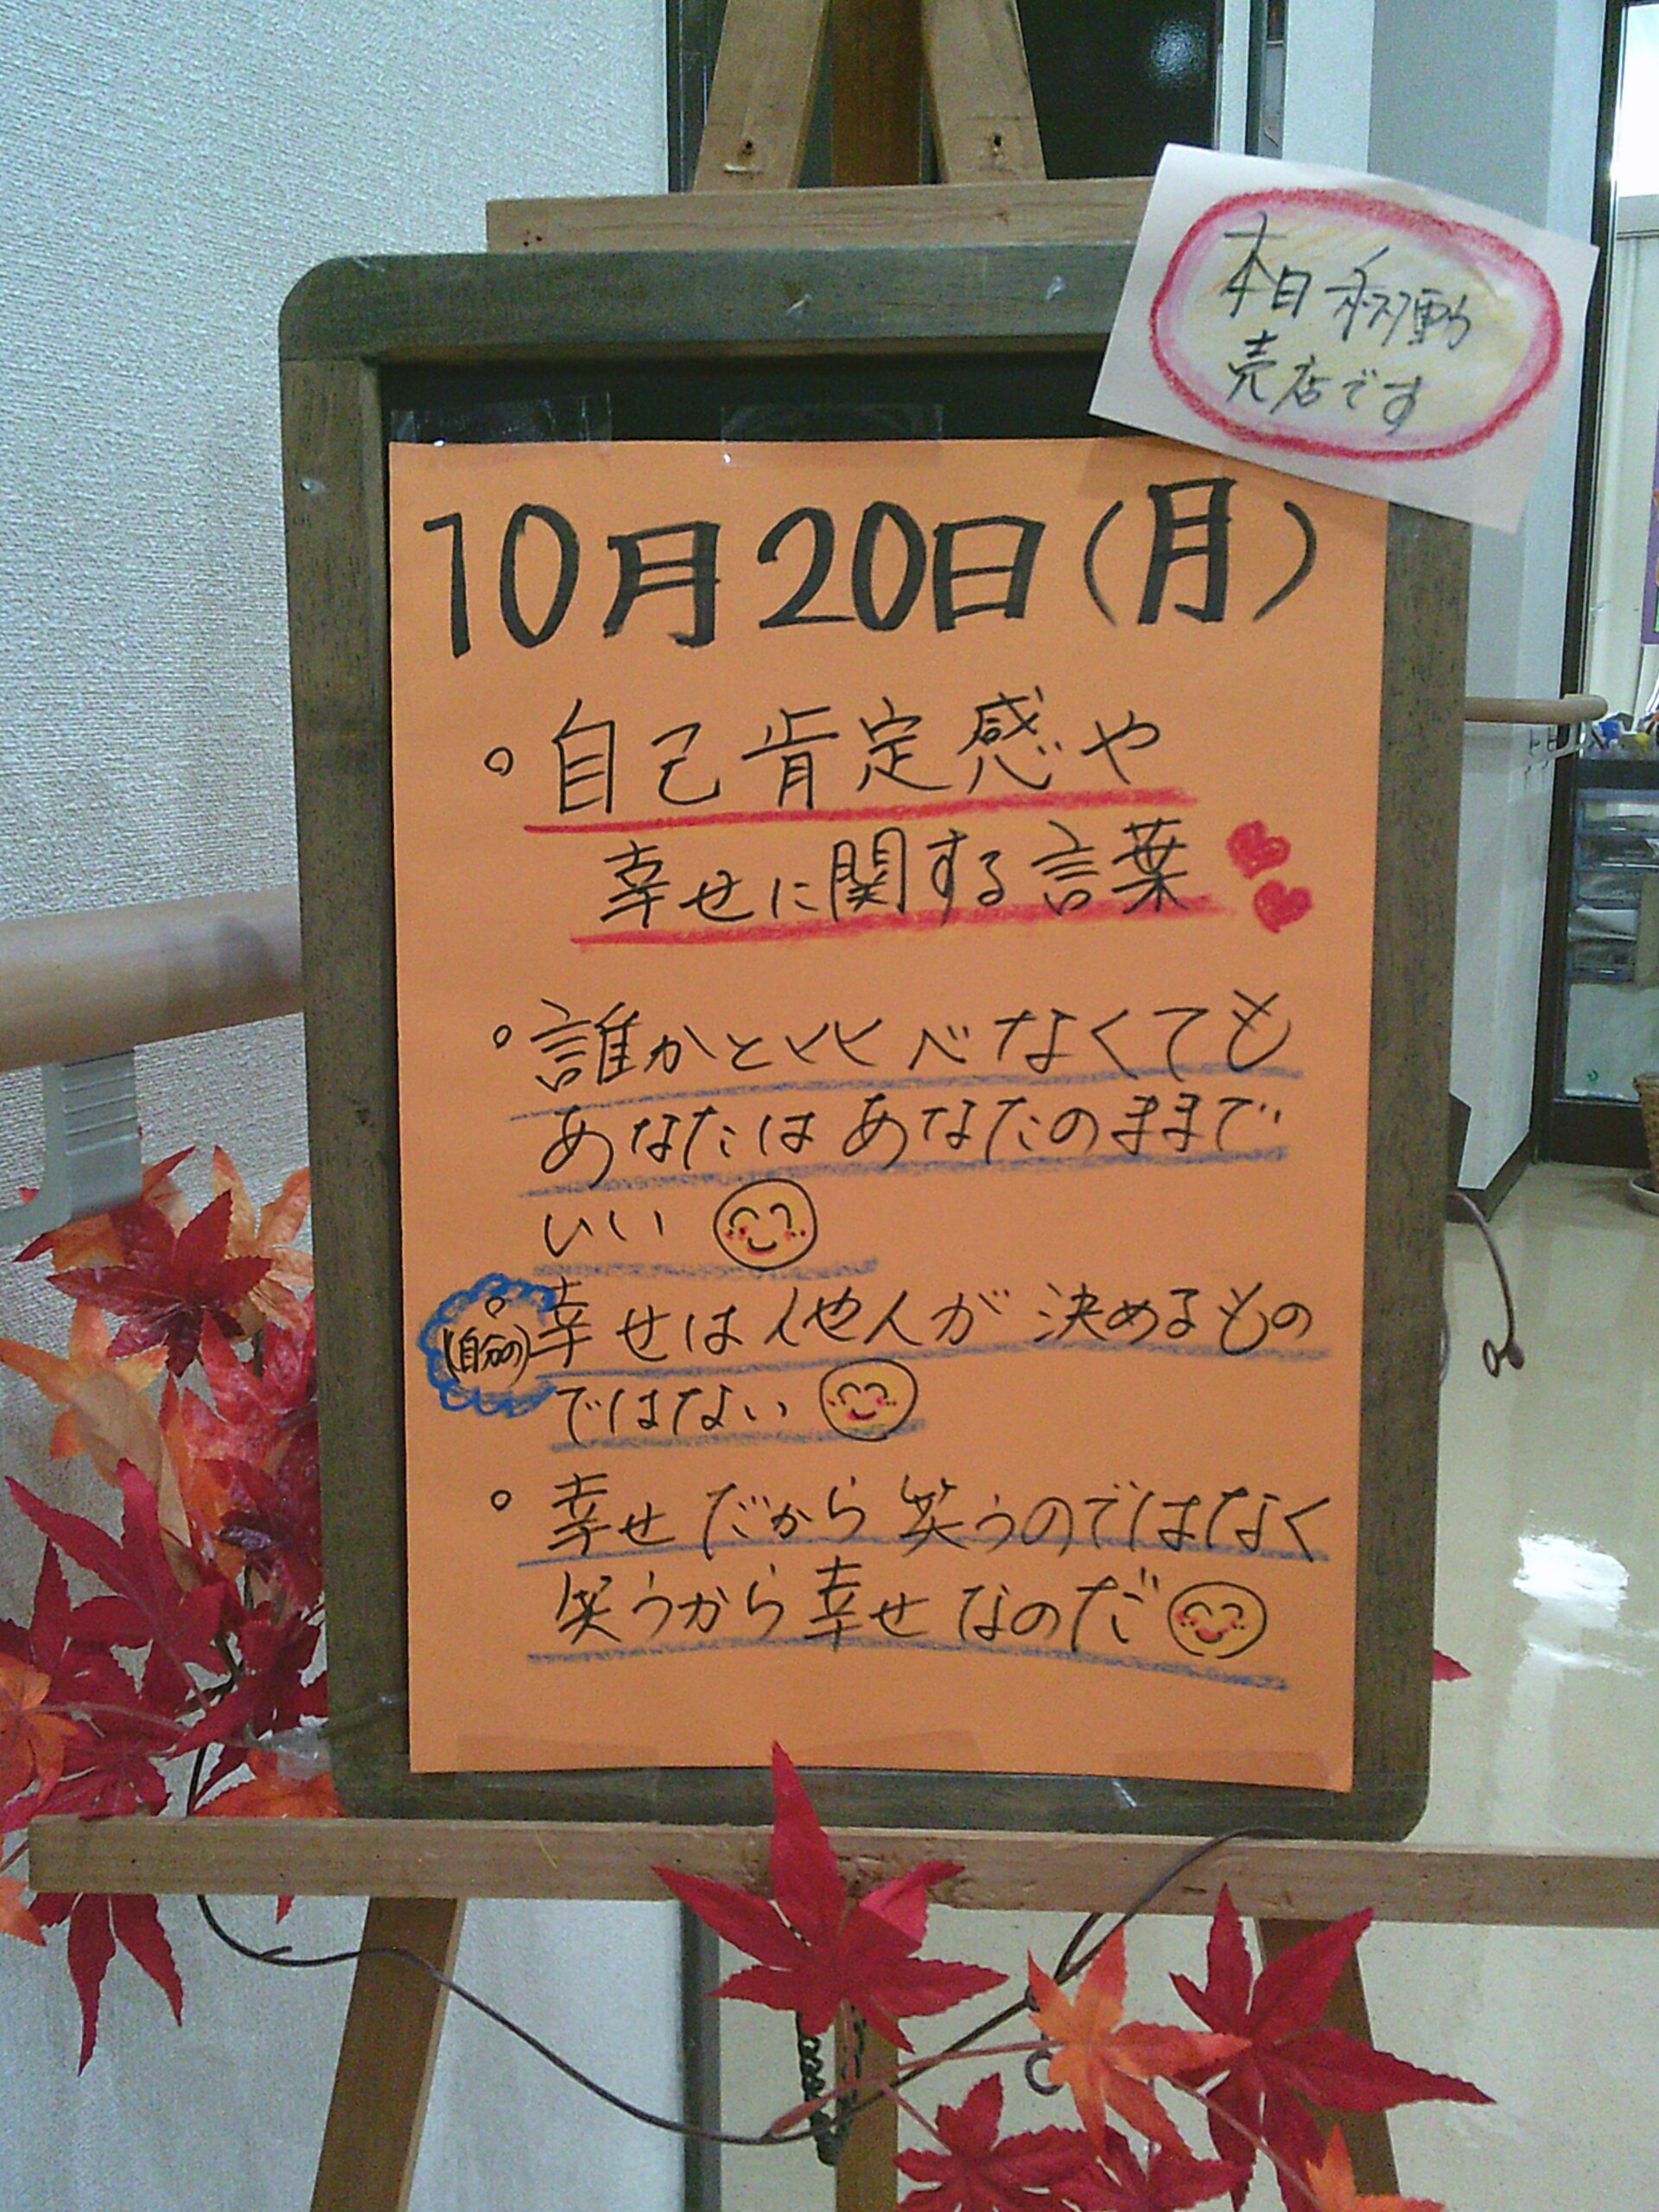 本日移動
売店です
10月20日(月)
。自己肯定感や
幸せに関する言葉
。誰かと比べなくても
あなたはあなたのままで
いい
。(自分の)幸せは他人が決めるもの
ではない
。幸せだから笑うのではなく
笑うから幸せなのだ